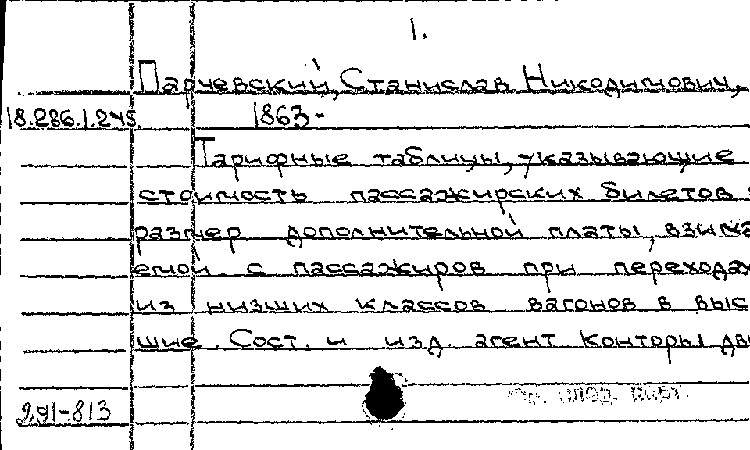 1.
Парчевский, Станислав Никодимович,
18.286.1.245.
1863-
Тарифные таблицы, указывающие
стоимость пассажирских билетов
размер дополнительной платы, взима
емой с пассажиров при переходах
из низших классов вагонов в выс
шие. Сост. и изд. агент Конторы дви
291-813
См. след. карт.